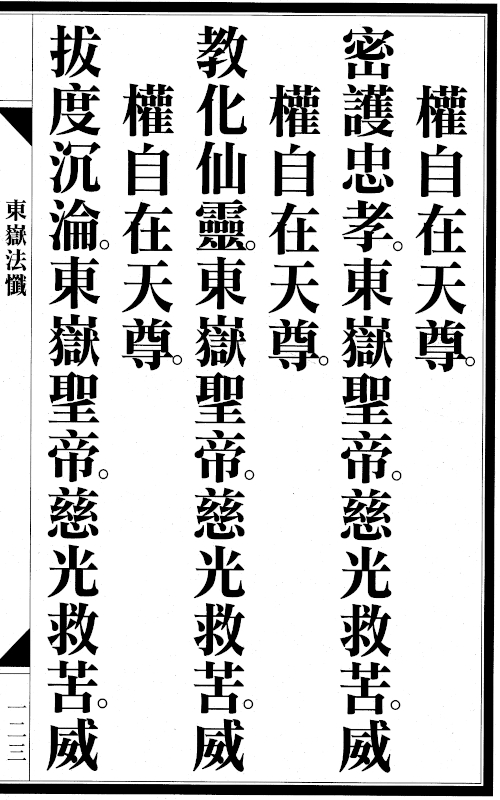 權自在天尊。
密護忠孝。東嶽聖帝。慈光救苦。威
權自在天尊。
教化仙靈。東嶽聖帝。慈光救苦。威
權自在天尊。
拔度沉淪。東嶽聖帝。慈光救苦。威
東嶽法懺
一二三